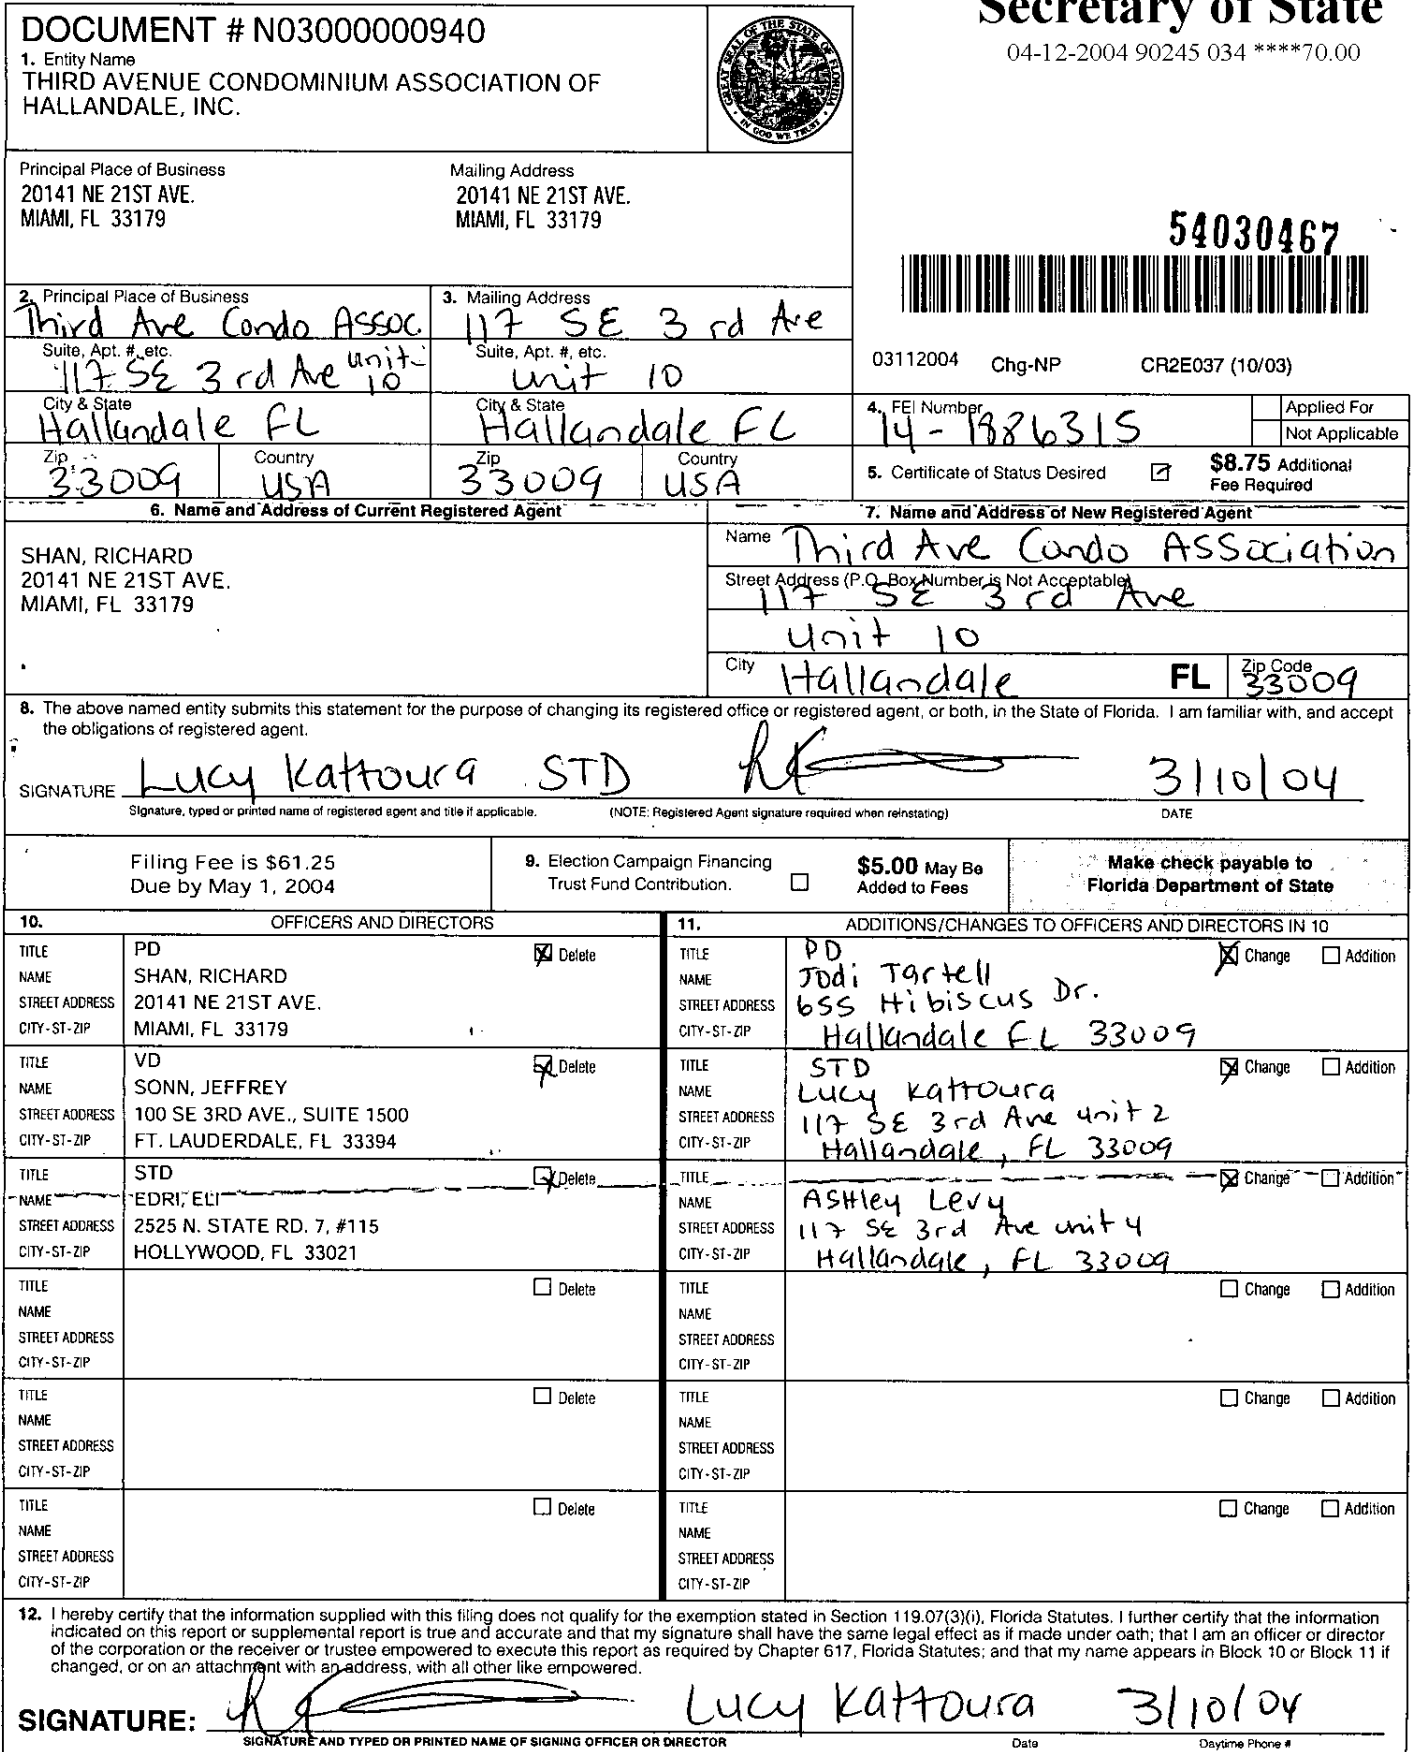 Secretary of State
04-12-2004 90245 034 ****70.00
DOCUMENT # N03000000940
1. Entity Name
THIRD AVENUE CONDOMINIUM ASSOCIATION OF
HALLANDALE, INC.
GREAT SEAL OF THE STATE OF FLORIDA
IN GOD WE TRUST
Principal Place of Business
20141 NE 21ST AVE.
MIAMI, FL 33179
Mailing Address
20141 NE 21ST AVE.
MIAMI, FL 33179
54030467
2. Principal Place of Business
Third Ave Condo Assoc.
Suite, Apt. #, etc.
117 SE 3rd Ave unit 10
City & State
Hallandale FL
Zip
33009
Country
USA
3. Mailing Address
117 SE 3rd Ave
Suite, Apt. #, etc.
unit 10
City & State
Hallandale FL
Zip
33009
Country
USA
03112004 Chg-NP CR2E037 (10/03)
4. FEI Number
14-1886315
Applied For
Not Applicable
5. Certificate of Status Desired
$8.75 Additional
Fee Required
6. Name and Address of Current Registered Agent
SHAN, RICHARD
20141 NE 21ST AVE.
MIAMI, FL 33179
7. Name and Address of New Registered Agent
Name Third Ave Condo Association
Street Address (P.O. Box Number is Not Acceptable)
117 SE 3rd Ave
unit 10
City Hallandale FL Zip Code 33009
8. The above named entity submits this statement for the purpose of changing its registered office or registered agent, or both, in the State of Florida. I am familiar with, and accept
the obligations of registered agent.
SIGNATURE Lucy Kattoura STD 3/10/04
Signature, typed or printed name of registered agent and title if applicable. (NOTE: Registered Agent signature required when reinstating) DATE
Filing Fee is $61.25
Due by May 1, 2004
9. Election Campaign Financing
Trust Fund Contribution.
$5.00 May Be
Added to Fees
Make check payable to
Florida Department of State
10. OFFICERS AND DIRECTORS
TITLE PD Delete
NAME SHAN, RICHARD
STREET ADDRESS 20141 NE 21ST AVE.
CITY-ST-ZIP MIAMI, FL 33179
TITLE VD Delete
NAME SONN, JEFFREY
STREET ADDRESS 100 SE 3RD AVE., SUITE 1500
CITY-ST-ZIP FT. LAUDERDALE, FL 33394
TITLE STD Delete
NAME EDRI, ELI
STREET ADDRESS 2525 N. STATE RD. 7, #115
CITY-ST-ZIP HOLLYWOOD, FL 33021
TITLE Delete
NAME
STREET ADDRESS
CITY-ST-ZIP
TITLE Delete
NAME
STREET ADDRESS
CITY-ST-ZIP
TITLE Delete
NAME
STREET ADDRESS
CITY-ST-ZIP
11. ADDITIONS/CHANGES TO OFFICERS AND DIRECTORS IN 10
TITLE PD Change Addition
NAME Jodi Tartell
STREET ADDRESS 655 Hibiscus Dr.
CITY-ST-ZIP Hallandale FL 33009
TITLE STD Change Addition
NAME Lucy Kattoura
STREET ADDRESS 117 SE 3rd Ave unit 2
CITY-ST-ZIP Hallandale, FL 33009
TITLE Change Addition
NAME Ashley Levy
STREET ADDRESS 117 SE 3rd Ave unit 4
CITY-ST-ZIP Hallandale, FL 33009
TITLE Change Addition
NAME
STREET ADDRESS
CITY-ST-ZIP
TITLE Change Addition
NAME
STREET ADDRESS
CITY-ST-ZIP
TITLE Change Addition
NAME
STREET ADDRESS
CITY-ST-ZIP
12. I hereby certify that the information supplied with this filing does not qualify for the exemption stated in Section 119.07(3)(i), Florida Statutes. I further certify that the information
indicated on this report or supplemental report is true and accurate and that my signature shall have the same legal effect as if made under oath; that I am an officer or director
of the corporation or the receiver or trustee empowered to execute this report as required by Chapter 617, Florida Statutes; and that my name appears in Block 10 or Block 11 if
changed, or on an attachment with an address, with all other like empowered.
SIGNATURE: Lucy Kattoura 3/10/04
SIGNATURE AND TYPED OR PRINTED NAME OF SIGNING OFFICER OR DIRECTOR Date Daytime Phone #